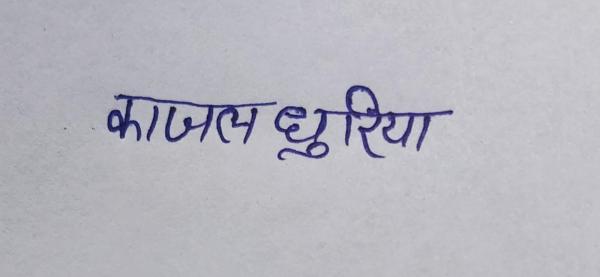 काजल धुरिया